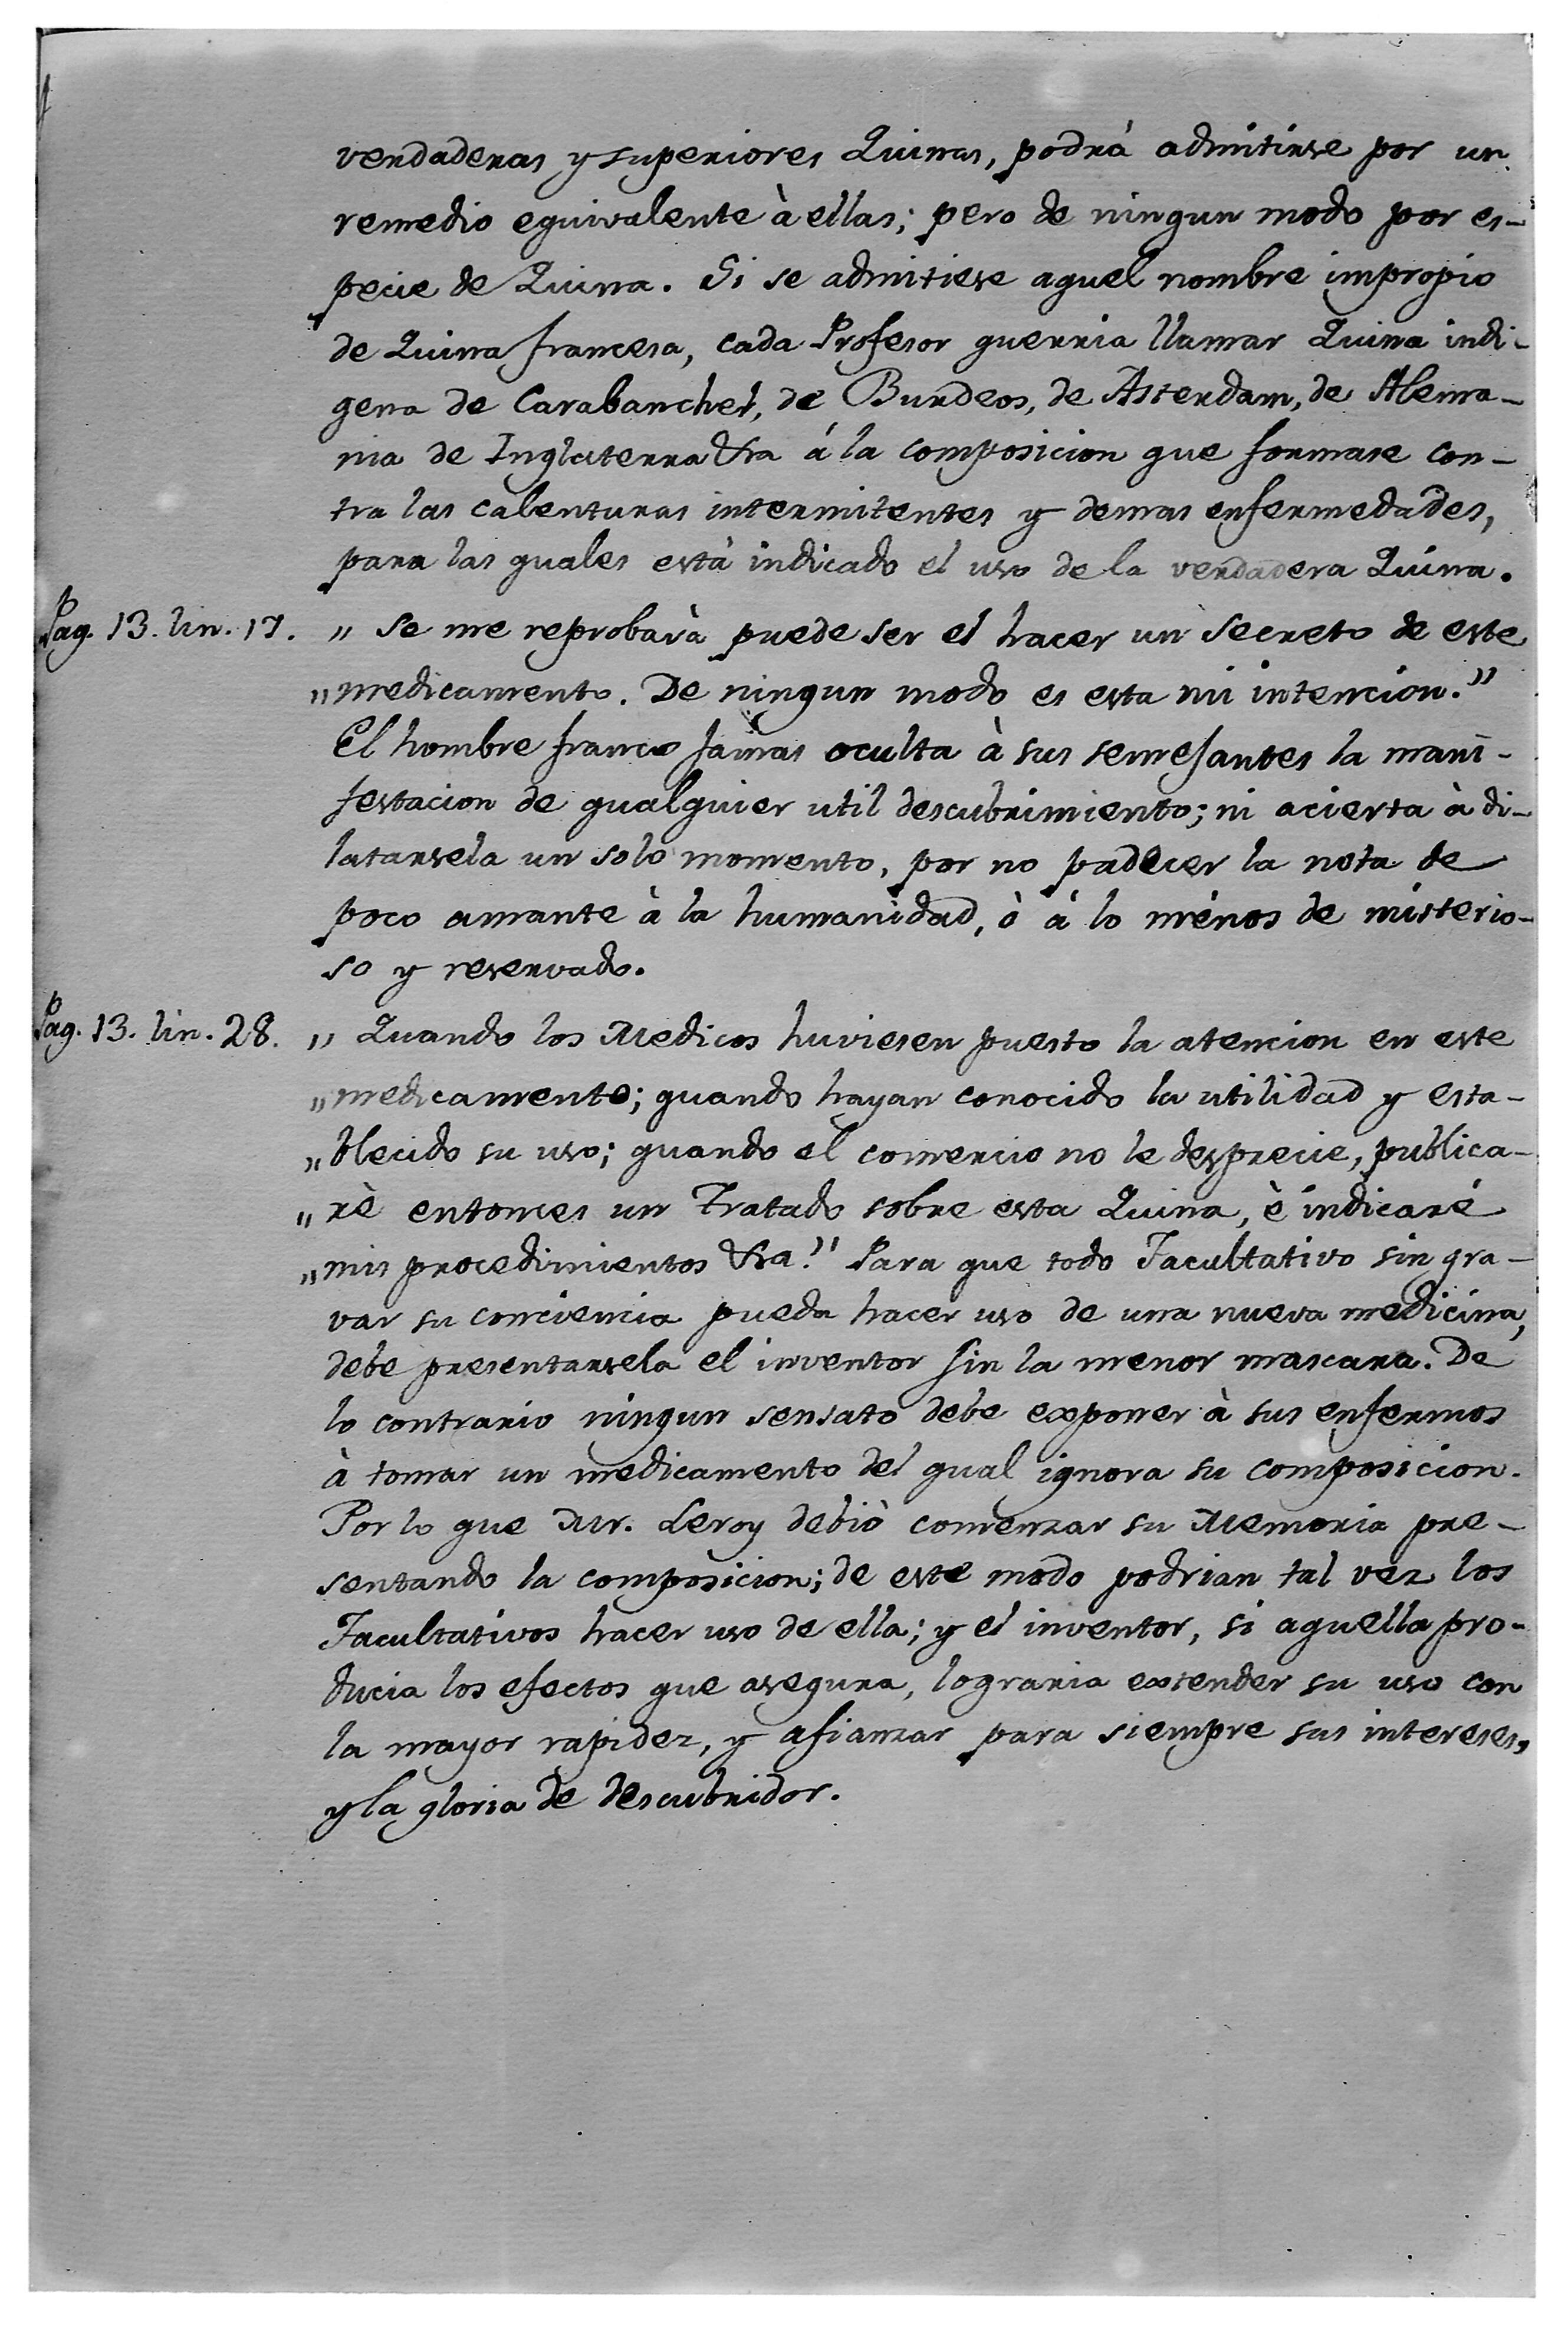 verdaderas y superiores Quinas, podrá admitirse por un
remedio equivalente à ellas; pero de ningun modo por es-
pecie de Quina. Si se admitiese aquel nombre impropio
de Quina francesa, cada Profesor querria llamar Quina indi-
gena de Carabanchel, de Burdeos, de Asterdam, de Alema-
nia de Inglaterra &ra á la composicion que formase con-
tra las calenturas intermitentes y demas enfermedades,
para las quales està indicado el uso de la verdadera Quina.
Pag. 13. lin. 17. „ Se me reprobarà puede ser el hacer un secreto de este
„ medicamento. De ningun modo es esta mi intencion."
El hombre franco jamas oculta à sus semejantes la mani-
festacion de qualquier util descubrimiento; ni acierta à di-
latarsela un solo momento, por no padecer la nota de
poco amante à la humanidad, ò á lo ménos de misterio-
so y reservado.
Pag. 13. lin. 28. „ Quando los Medicos huviesen puesto la atencion en este
„ medicamento; quando hayan conocido la utilidad y esta-
„ blecido su uso; quando el comercio no le desprecie, publica-
„ rè entonces un Tratado sobre esta Quina, è indicaré
„ mis procedimientos &ra." Para que todo Facultativo sin gra-
var su conciencia pueda hacer uso de una nueva medicina,
debe presentarsela el inventor sin la menor mascara. De
lo contrario ningun sensato debe exponer à sus enfermos
à tomar un medicamento del qual ignora su composicion.
Por lo que Mr. Leroy debiò comenzar su Memoria pre-
sentando la composicion; de este modo podrian tal vez los
Facultativos hacer uso de ella; y el inventor, si aquella pro-
ducia los efectos que asegura, lograria extender su uso con
la mayor rapidez, y afianzar para siempre sus intereses,
y la gloria de descubridor.